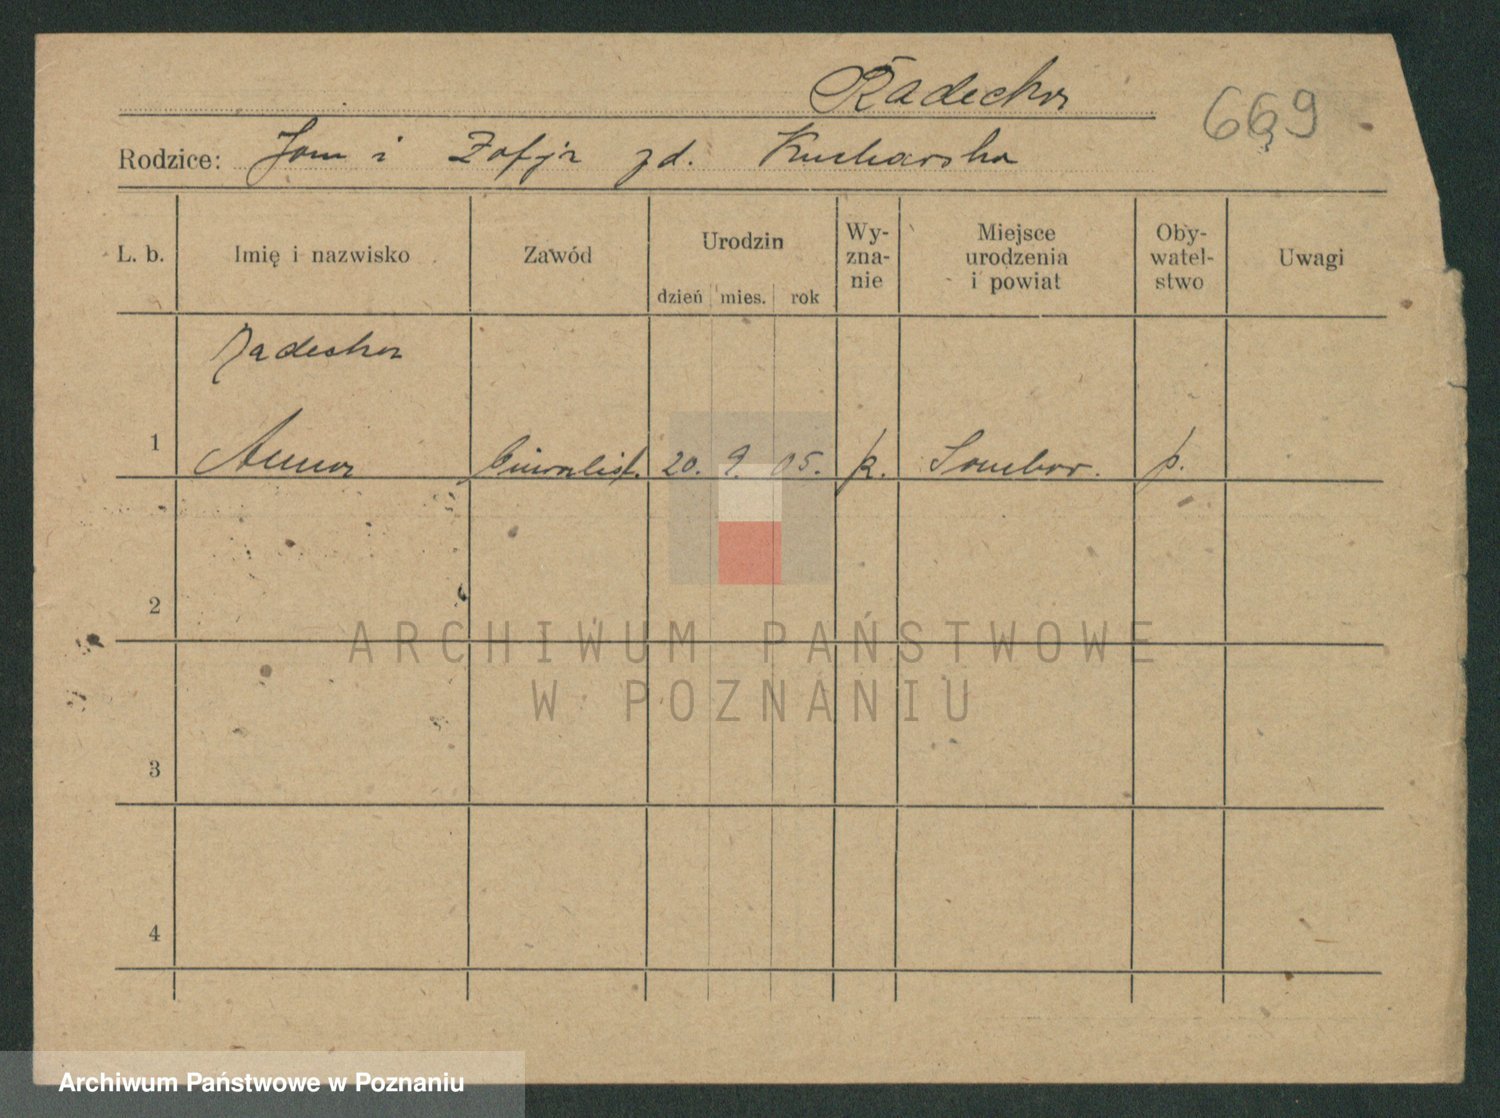 Radecka
669
Rodzice: Jan i Zofja zd. Kucharska
L. b. Imię i nazwisko Zawód Urodzin dzień mies. rok Wy-zna-nie Miejsce urodzenia i powiat Oby-watel-stwo Uwagi
Radecka
1 Anna biuralist. 20. 9. 05. k. Sambor. p.
2
ARCHIWUM PAŃSTWOWE
W POZNANIU
3
4
Archiwum Państwowe w Poznaniu